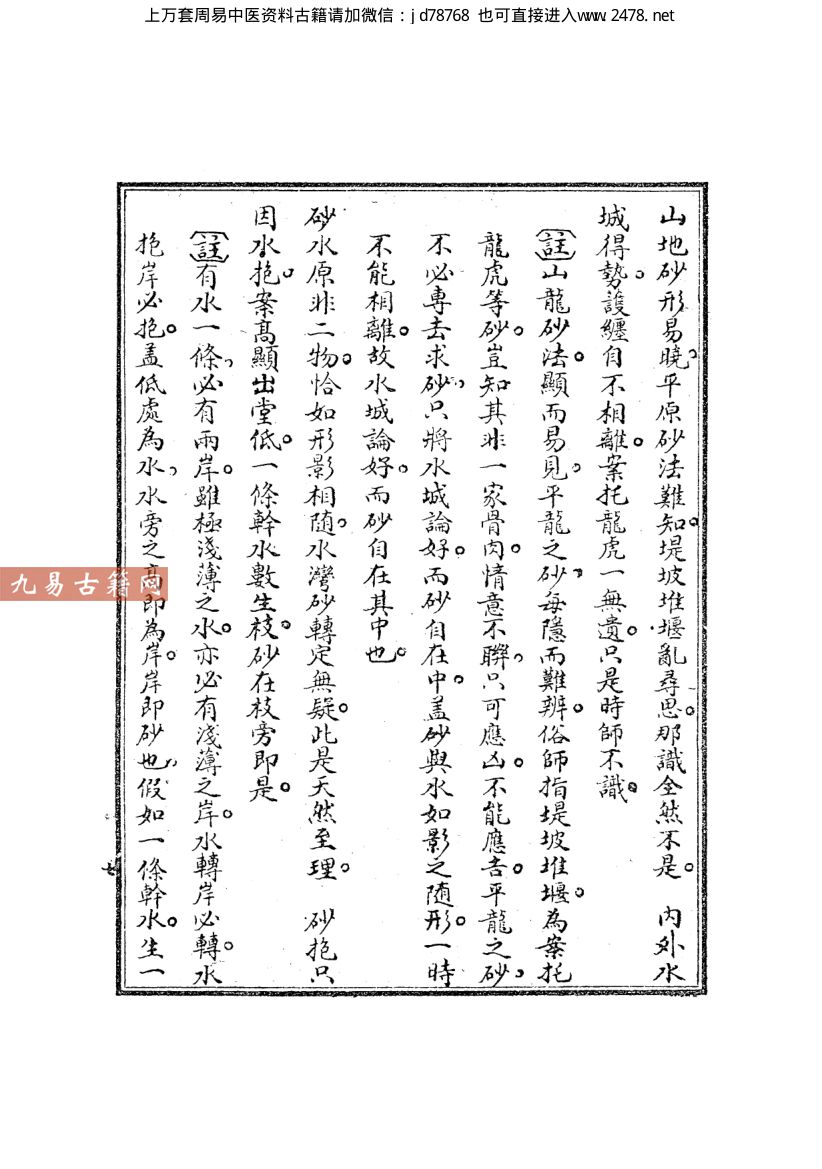 上万套周易中医资料古籍请加微信：jd78768 也可直接进入www.2478.net
山地砂形易曉平原砂法難知。堤坡堆堰亂尋思。那識全然不是。 內外水
城得勢。護纏自不相離。案托龍虎一無遺。只是時師不識。
註山龍砂法。顯而易見。平龍之砂。每隱而難辨。俗師指堤坡堆堰。為案托
龍虎等砂。豈知其非一家骨肉。情意不聯。只可應凶。不能應吉。平龍之砂。
不必專去求砂。只將水城論好。而砂自在中。蓋砂與水如影之隨形。一時
不能相離。故水城論好。而砂自在其中也。
砂水原非二物。恰如形影相隨。水灣砂轉定無疑。此是天然至理。 砂抱只
因水抱。案高顯出堂低。一條幹水數生枝。砂在枝旁即是。
註有水一條。必有兩岸。雖極淺薄之水。亦必有淺薄之岸。水轉岸必轉。水
抱岸必抱。蓋低處為水。水旁之高即為岸。岸即砂也。假如一條幹水。生一
九易古籍网